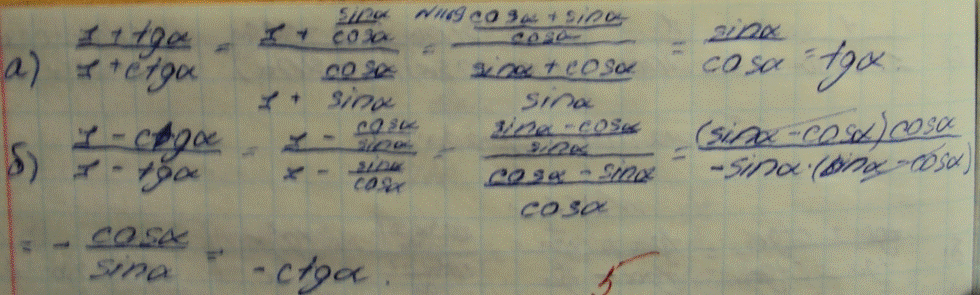 №1169
а) (1 + tgα)/(1 + ctgα) = (1 + sinα/cosα)/(1 + cosα/sinα) = ((cosα + sinα)/cosα)/((sinα + cosα)/sinα) = sinα/cosα = tgα.
б) (1 - ctgα)/(1 - tgα) = (1 - cosα/sinα)/(1 - sinα/cosα) = ((sinα - cosα)/sinα)/((cosα - sinα)/cosα) = ((sinα - cosα) cosα)/(-sinα·(sinα - cosα))
= - cosα/sinα = -ctgα.
5